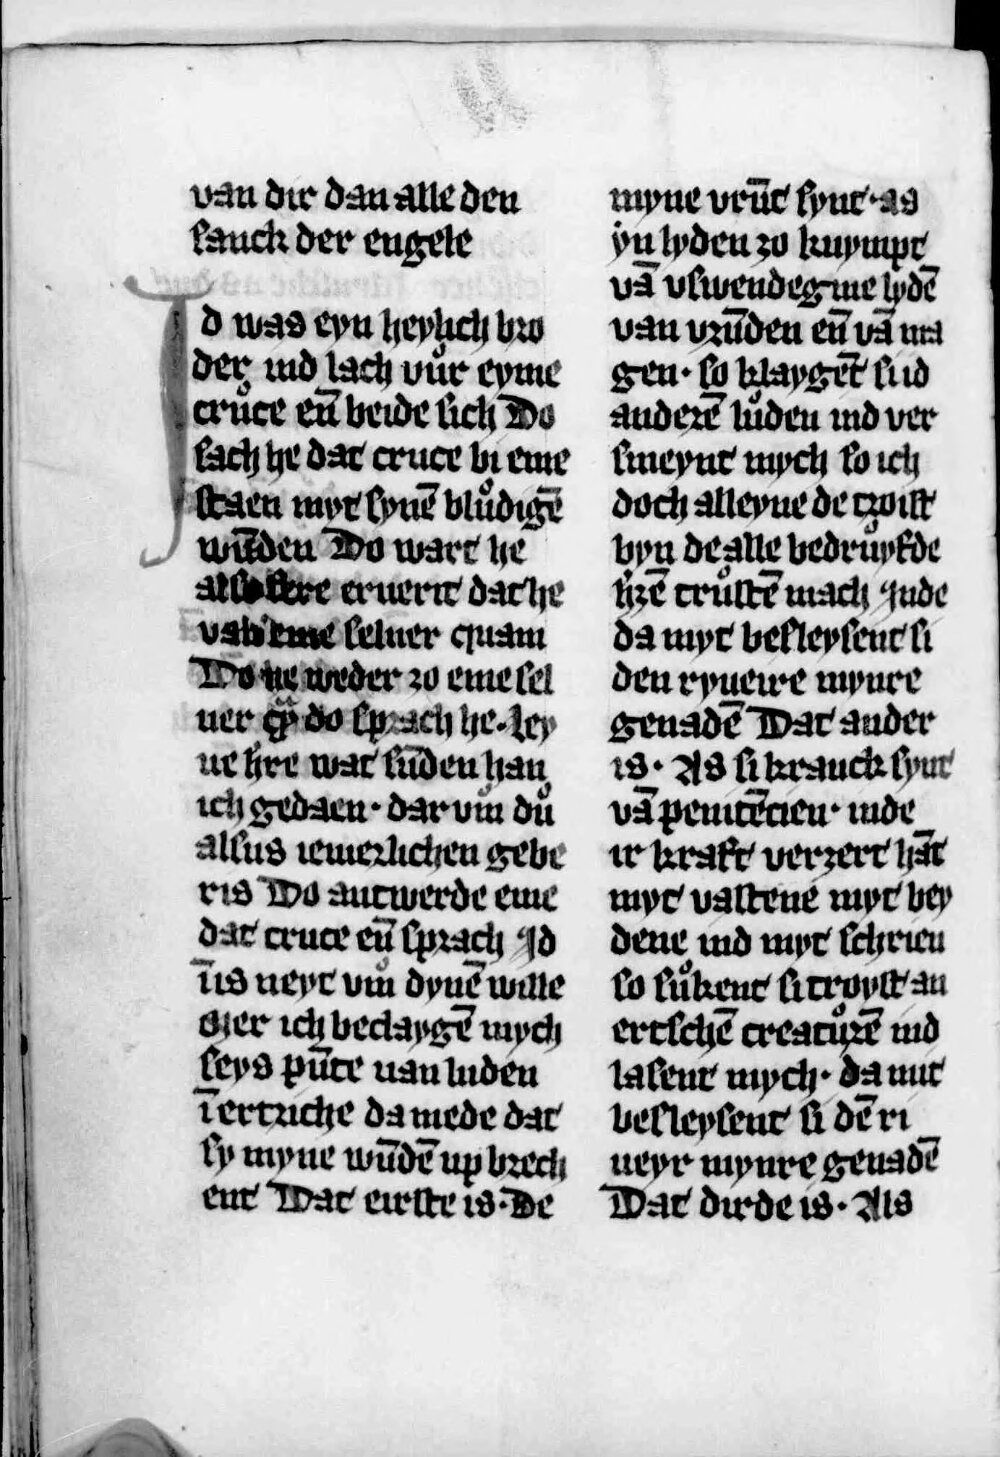 van dir dan alle den
sanck der engele
Id was eyn heylich bro
der ind lach vuͦr eyme
cruͦce en̄ beide sich Do
sach he dat cruce bi eme
staen myt synē bluͦdigē
wūden Do wart he
also sere eruerit dat he
van eme seluer quam
Do he weder zo eme sel
uer q̄ do sprach he · ley
ue h̄re wat sūden han
ich gedaen · dar vm̄ duͦ
alsus iemerlichen gebe
ris Do antwerde eme
dat cruce en̄ sprach Id
īs neyt vmͦ dynē wille
mer ich beclaygē mych
seys pūte uan luden
ī ertriche da mede dat
sy myne wūdē up brech
ent Dat eirste is · De
myne vrūt synt · as
yn lyden zo kuympt
vā vswendegme lydē
van vrūden en̄ vā ma
gen · so klaygēt si id
anderē luͦden ind ver
smeynt mych so ich
doch alleyne de troist
byn de alle bedruͦyfde
h̄zē truͦstē mach Inde
da myt besleysent si
den ryuere mynre
genadē Dat ander
is · As si kranck synt
vā penitēcien · inde
ir kraft verzert hāt
myt vastene myt bey
dene ind myt schrien
so suͦkent si troyst an
ertschē creatuͦrē ind
lasent mych · da mit
besleysent si dē ri
ueyr mynre genadē
Dat dirde is · Als